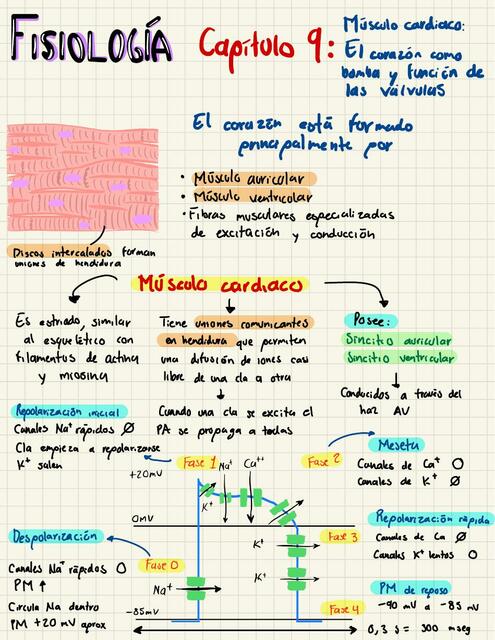 FISIOLOGÍA
Capítulo 9:
Músculo cardiaco:
El corazón como
bomba y función de
las válvulas
El corazón está formado
principalmente por
• Músculo auricular
• Músculo ventricular
• Fibras musculares especializadas
de excitación y conducción
Discos intercalados forman
uniones de hendidura
Músculo cardiaco
Es estriado, similar
al esquelético con
filamentos de actina
y miosina
Tiene uniones comunicantes
en hendidura que permiten
una difusión de iones casi
libre de una cla a otra
Cuando una cla se excita el
PA se propaga a todas
Posee:
Sincitio auricular
Sincitio ventricular
Conducidos a través del
haz AV
Repolarización inicial
Canales Na+ rápidos Ø
Cla empieza a repolarizarse
K+ salen
Fase 1
Fase 2
Meseta
Canales de Ca+ O
Canales de K+ Ø
+20mV
Na+
Ca++
K+
0mV
Repolarización rápida
Canales de Ca Ø
Canales K+ lentos O
Fase 3
K+
K+
Despolarización
Canales Na+ rápidos O
PM ↑
Circula Na dentro
PM +20 mV aprox
Fase 0
Na+
-85mV
Fase 4
PM de reposo
-90 mV a -85 mV
0,3 s = 300 mseg